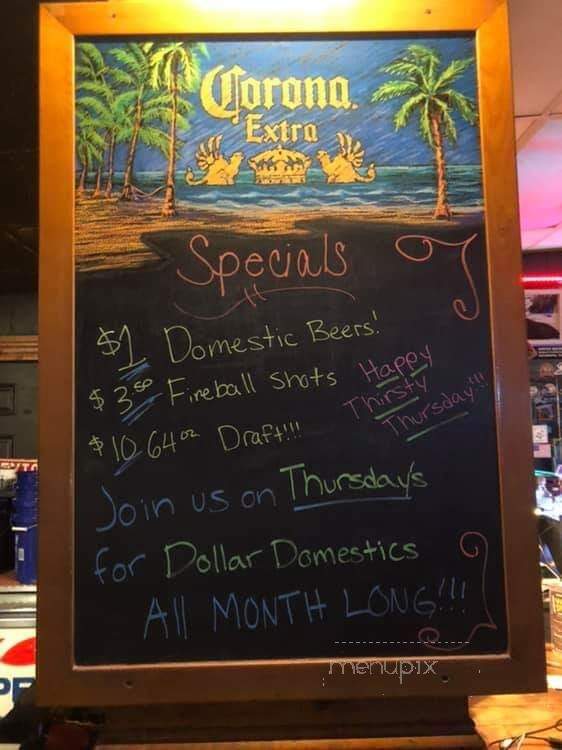 Corona.
Extra
Specials
$1 Domestic Beers!
$3.50 Fireball Shots
$10 64oz Draft!!!
Happy
Thirsty
Thursday!!!
Join us on Thursday's
for Dollar Domestics
All MONTH LONG!!!
menupix